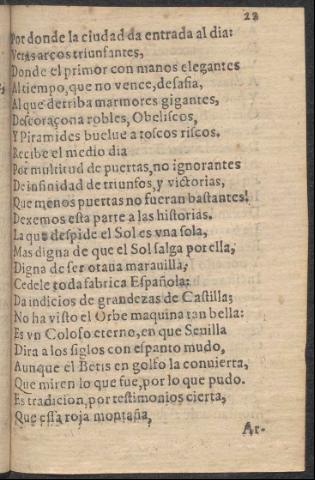 22
Por donde la ciudad da entrada al dia:
Veras arcos triunfantes,
Donde el primor con manos elegantes
Al tiempo, que no vence, desafia,
Al que derriba marmores gigantes,
Descoraçona robles, Obeliscos,
Y Piramides buelue a toscos riscos.
Recibe el medio dia
Por multitud de puertas, no ignorantes
De infinidad de triunfos, y victorias,
Que menos puertas no fueran bastantes!
Dexemos esta parte a las historias.
La que despide el Sol es vna sola,
Mas digna de que el Sol salga por ella,
Digna de ser otaua marauilla,
Cedele toda fabrica Española;
Da indicios de grandezas de Castilla;
No ha visto el Orbe maquina tan bella:
Es vn Coloso eterno, en que Seuilla
Dira a los siglos con espanto mudo,
Aunque el Betis en golfo la conuierta,
Que miren lo que fue, por lo que pudo.
Es tradicion, por testimonios cierta,
Que essa roja montaña,
Ar-